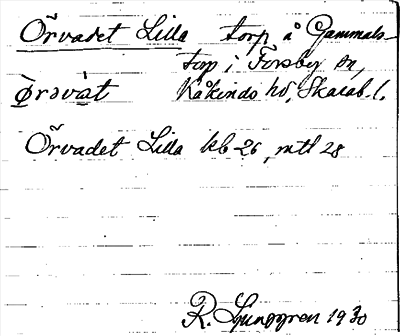 Örvadet Lilla torp å Gammals-
torp i Forsby sn,
Kåkinds hd, Skarab. l.
Örvadet Lilla kb 26, mtl 28
R. Ljunggren 1930